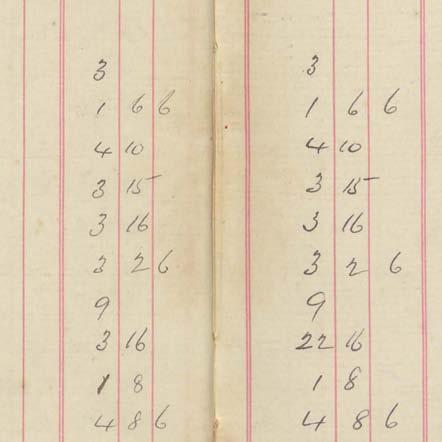 3 3
1 6 6 1 6 6
4 10 4 10
3 15 3 15
3 16 3 16
3 2 6 3 2 6
9 9
3 16 22 16
1 8 1 8
4 8 6 4 8 6